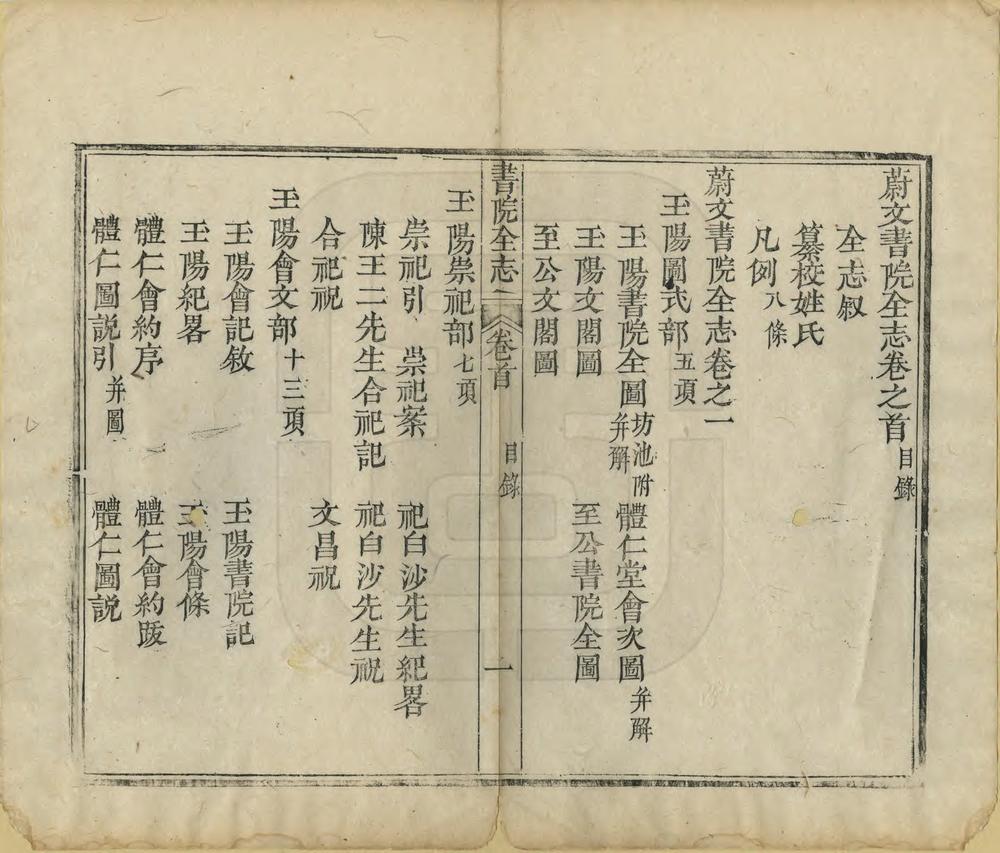 蔚文書院全志卷之首 目錄
全志叙
纂校姓氏
凡例 八條
蔚文書院全志卷之一
玉陽圖式部 五項
玉陽書院全圖 坊池附 并解 體仁堂會次圖 并解
玉陽文閣圖 至公書院全圖
至公文閣圖
書院全志 卷首 目錄 一
玉陽崇祀部 七項
崇祀引 崇祀案 祀白沙先生紀畧
陳王二先生合祀記 祀白沙先生祝
合祀祝 文昌祝
玉陽會文部 十三項
玉陽會記敘 玉陽書院記
玉陽紀畧 玉陽會條
體仁會約序 體仁會約跋
體仁圖説引 并圖 體仁圖説